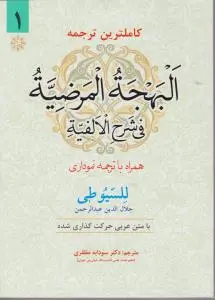 ۱
کاملترین ترجمه
اَلْبَهْجَةُ الْمَرْضِيَّةُ
فِي شَرْحِ الْأَلْفِيَّةِ
همراه با ترجمه نموداری
لِلسِّيُوطِی
جلال الدین عبدالرحمن
با متن عربی حرکت گذاری شده
مترجم: دکتر سودابه مظفری